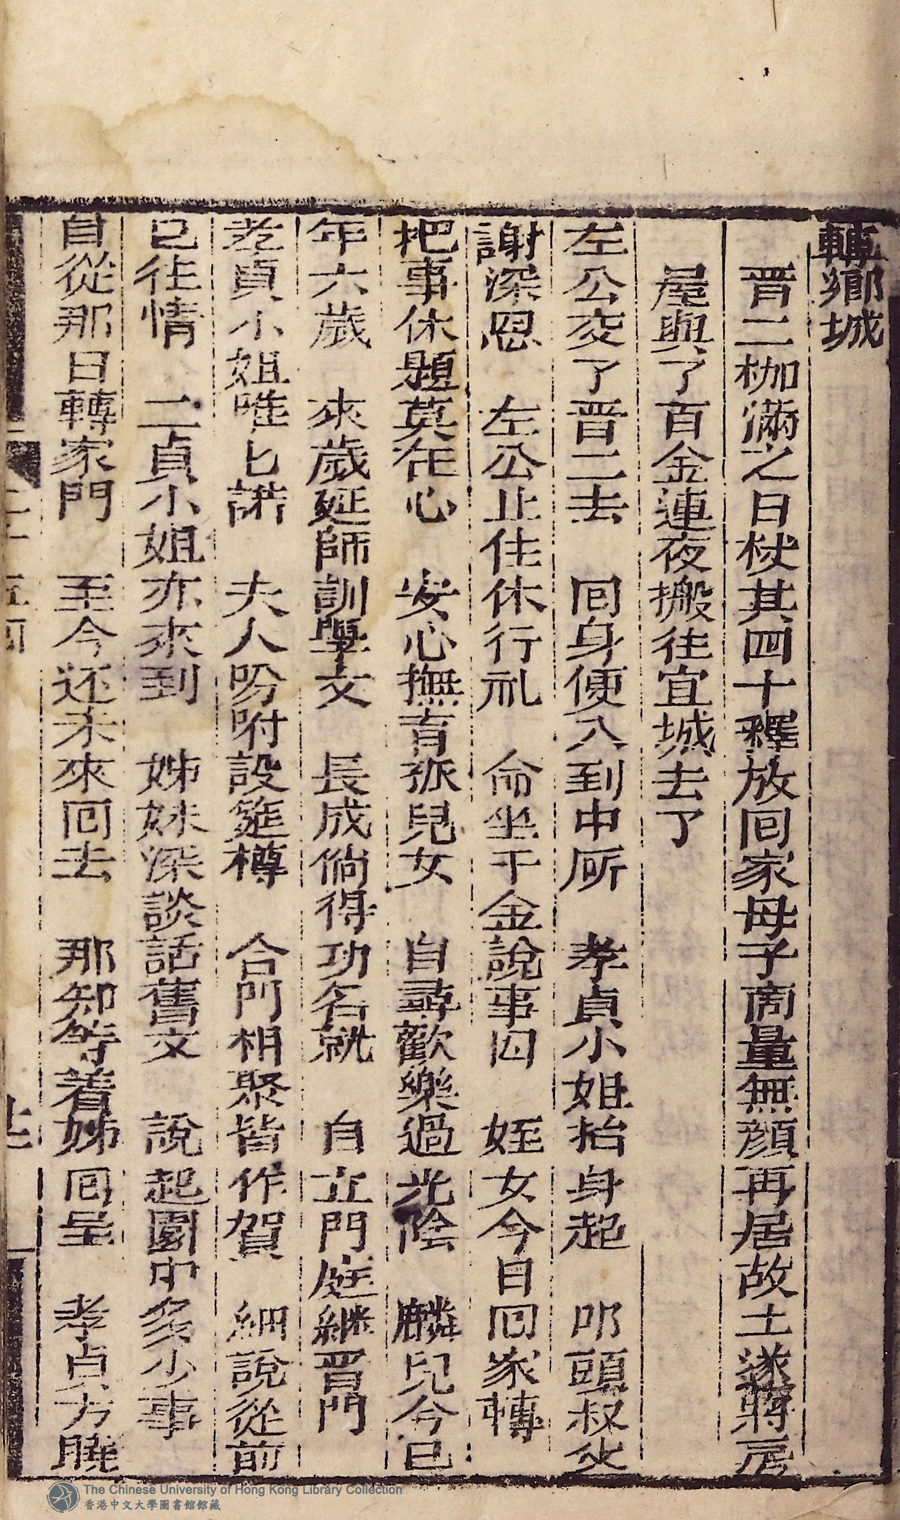 轉鄉城
晋二枷滿之日杖其四十釋放回家母子商量無顔再居故土遂將房
屋與了百金連夜搬往宜城去了
左公交了晋二去　回身便入到中所　孝貞小姐抬身起　叩頭叔父
謝深恩　左公止住休行礼　命坐千金說事因　姪女今日回家轉
把事休題莫在心　安心撫育孤兒女　自尋歡樂過光陰　麟兒今已
年六歲　來歲延師訓學文　長成倘得功名就　自立門庭繼晋門
孝貞小姐唯匕諾　夫人吩咐設筵樽　合門相聚皆作賀　細說從前
已往情　二貞小姐亦來到　姊妹深談話舊文　說起園中多少事
自從那日轉家門　至今还未來回去　那知等着姊回呈　孝貞方曉
The Chinese University of Hong Kong Library Collection
香港中文大學圖書館館藏